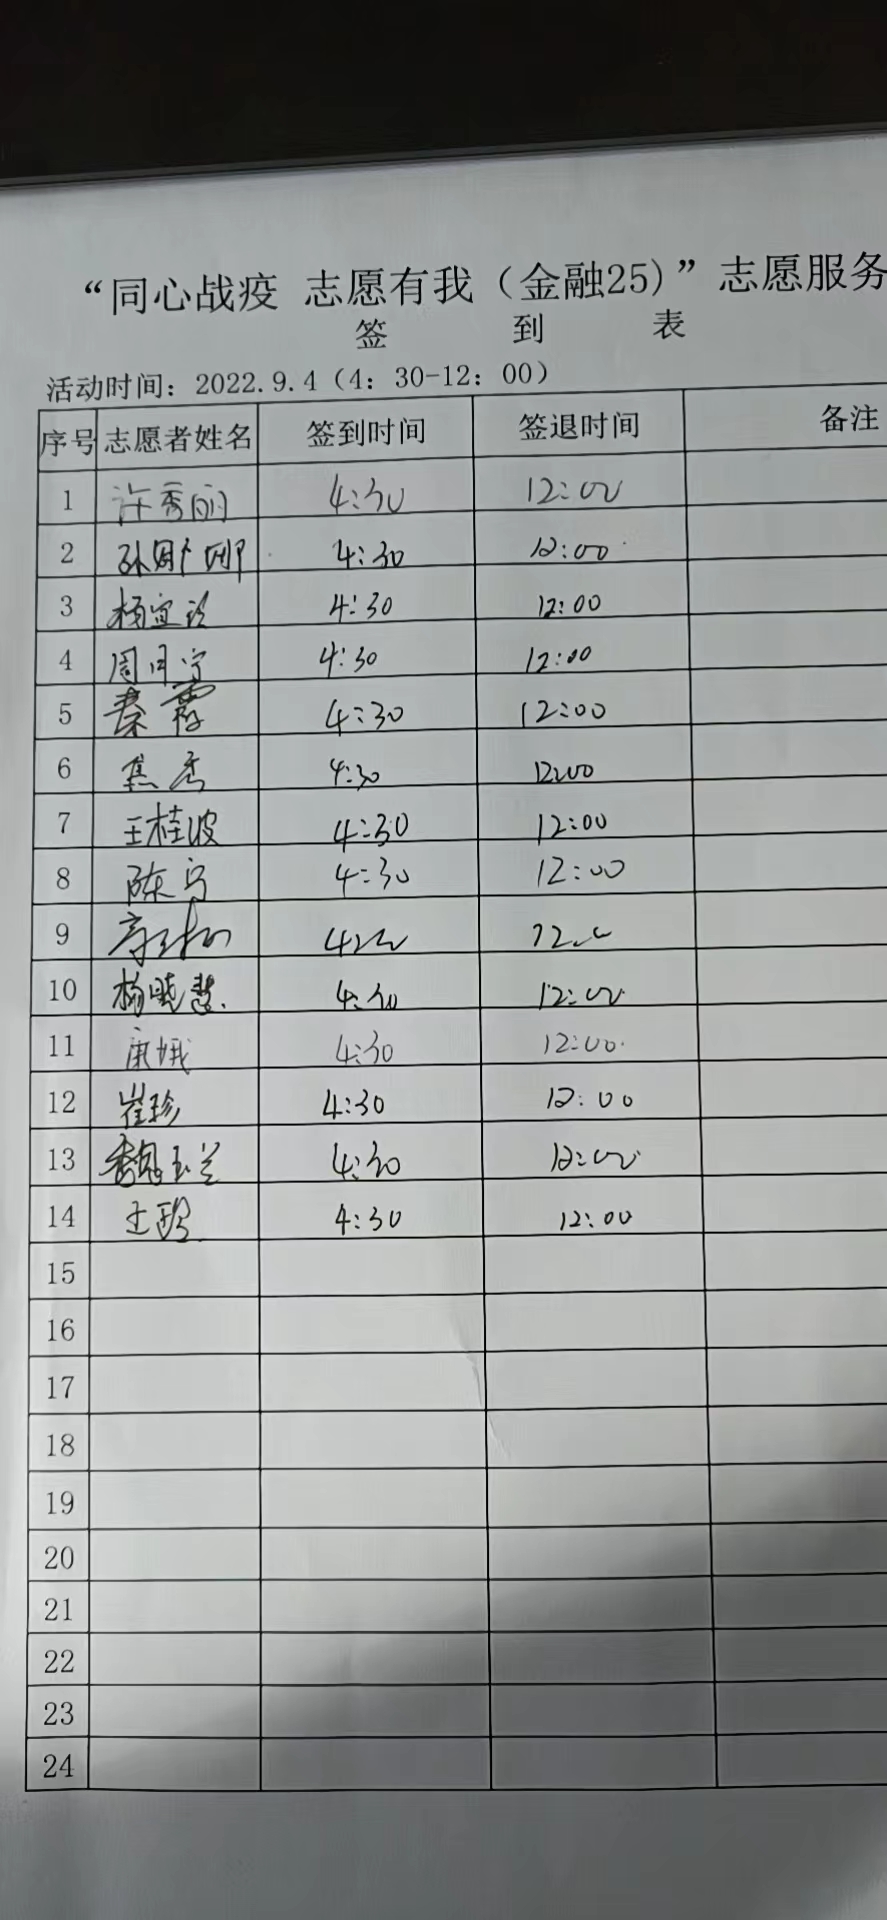 “同心战疫 志愿有我（金融25)”志愿服务
签 到 表
活动时间：2022.9.4（4：30-12：00）
序号 志愿者姓名 签到时间 签退时间 备注
1 许秀丽 4:30 12:00
2 孙娜娜 4:30 12:00
3 杨宜 4:30 12:00
4 周月宁 4:30 12:00
5 秦霞 4:30 12:00
6 焦 4:30 12:00
7 王桂波 4:30 12:00
8 陈宁 4:30 12:00
9
10 杨晓慧 4:30 12:00
11 康娥 4:30 12:00
12 崔珍 4:30 12:00
13 魏玉兰 4:30 12:00
14 王 4:30 12:00
15
16
17
18
19
20
21
22
23
24